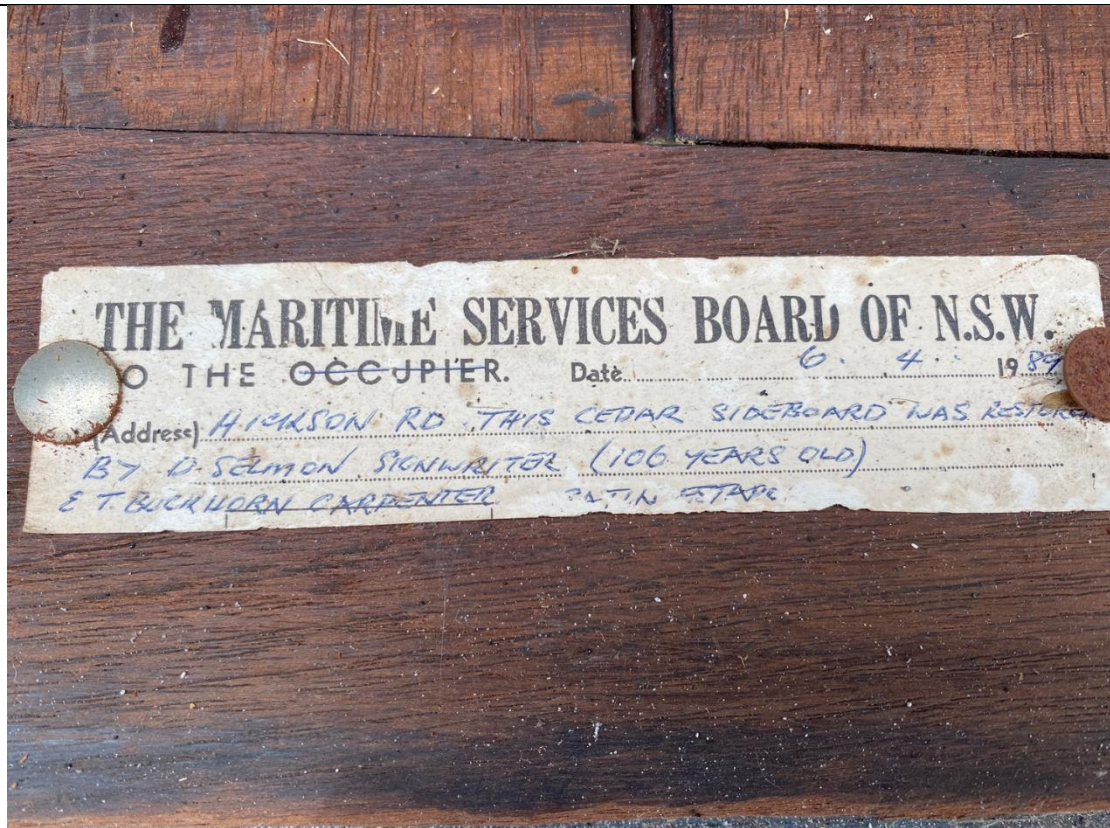 THE MARITIME SERVICES BOARD OF N.S.W.
O THE OCCUPIER. Date 6. 4. 1989
(Address) HICKSON RD THIS CEDAR SIDEBOARD WAS RESTORED
BY D. SELMON SIGNWRITER (106 YEARS OLD)
& T. BUCKHORN CARPENTER